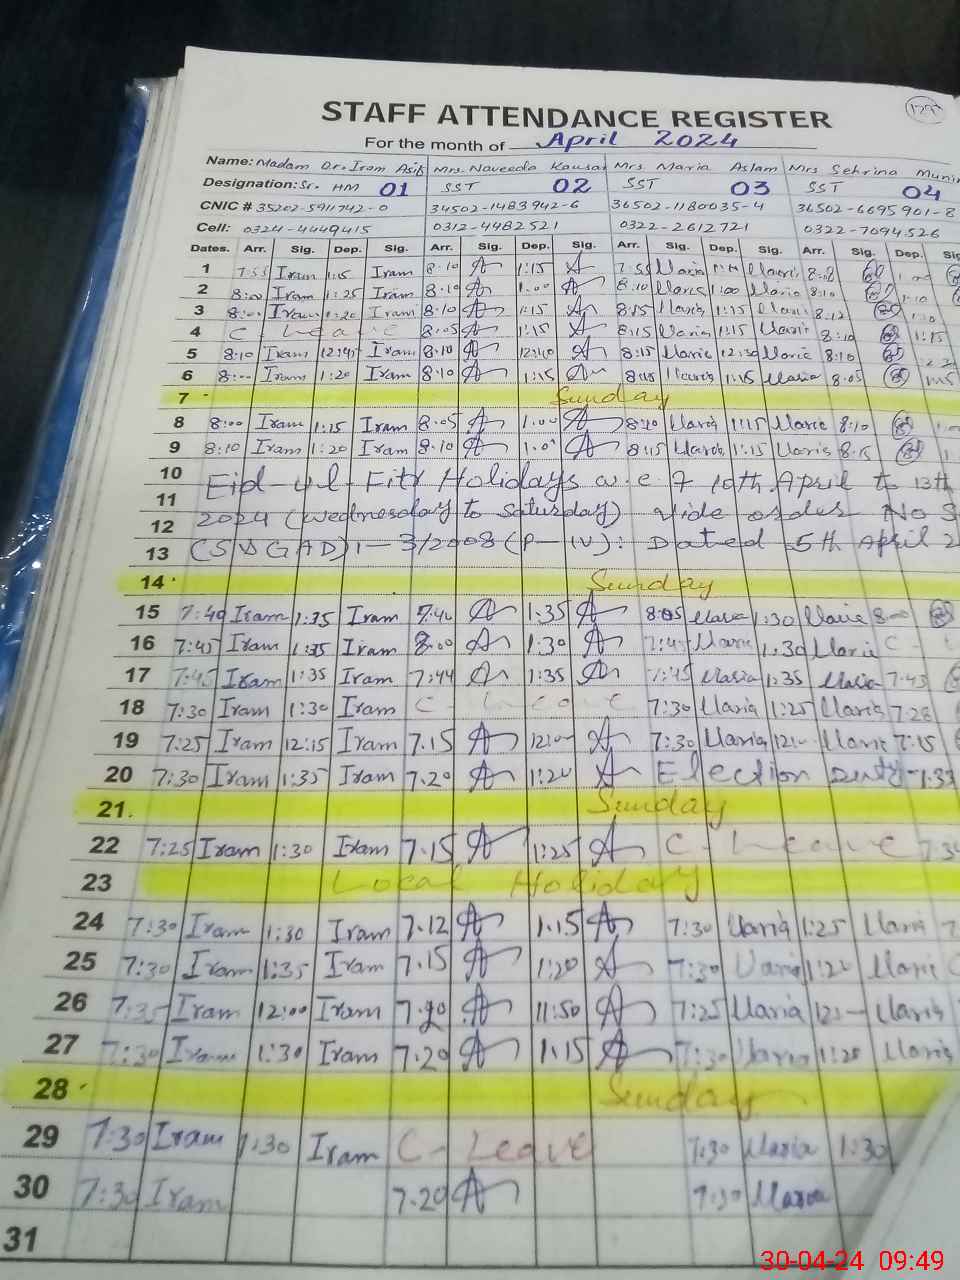 STAFF ATTENDANCE REGISTER
For the month of April 2024
Name: Madam Dr. Iram Asif Mrs. Naveeda Kausar Mrs Maria Aslam Mrs Sehrina Munir
Designation: Sr. HM 01 SST 02 SST 03 SST 04
CNIC # 35202-5911742-0 34502-1483942-6 36502-1180035-4 36502-6695901-8
Cell: 0324-4449415 0312-4482521 0322-2612721 0322-7094526
Dates. Arr. Sig. Dep. Sig. Arr. Sig. Dep. Sig. Arr. Sig. Dep. Sig. Arr. Sig. Dep. Sig
1 7:55 Iram 1:15 Iram 8.10 1:15 7:55 Maria Maria 8:8 1:00
2 8:00 Iram 1:25 Iram 8.10 1:00 8:10 Maria 1:00 Maria 8:10 1:10
3 8:00 Iram 1:20 Iram 8.10 1:15 8:15 Maria 1:15 Maria 8:12 1:10
4 C Leave 8:05 1:15 8:15 Maria 1:15 Maria 8:10 1:15
5 8:10 Iram 12:45 Iram 8.10 12:40 8:15 Maria 12:30 Maria 8:10
6 8:00 Iram 1:20 Iram 8:10 1:15 8:15 Maria 1:15 Maria 8.05
7 Sunday
8 8:00 Iram 1:15 Iram 8.05 1:00 8:10 Maria 1:15 Maria 8:10
9 8:10 Iram 1:20 Iram 8.10 8:15 Maria 1:15 Maria 8.15
10 Eid-ul-Fitr Holidays w.e.f 10th April to 13th
11 2024 (Wednesday to Saturday) vide order No S
12
13 (S&GAD)1-3/2008 (P-IV): Dated 5th April 2
14 Sunday
15 7:40 Iram 1:35 Iram 7:40 1:35 8:05 Maria 1:30 Maria 8:00
16 7:45 Iram 1:35 Iram 8:00 1:30 7:45 Maria 1:30 Maria C -
17 7:45 Iram 1:35 Iram 7:44 1:35 7:45 Maria 1:35 Maria 7:43
18 7:30 Iram 1:30 Iram C - Leave 7:30 Maria 1:25 Maria 7:28
19 7:25 Iram 12:15 Iram 7.15 12:00 7:30 Maria 12:00 Maria 7:15
20 7:30 Iram 1:35 Iram 7.20 1:20 Election Duty
21. Sunday
22 7:25 Iram 1:30 Iram 7.15 1:25 C - Leave
23 Local Holiday
24 7:30 Iram 1:30 Iram 7.12 1.15 7:30 Maria 1:25 Maria
25 7:30 Iram 1:35 Iram 7.15 1:20 7:30 Maria 1:20 Maria
26 7:35 Iram 12:00 Iram 7.20 11:50 7:25 Maria Maria
27 7:30 Iram 1:30 Iram 7.20 1.15 7:30 Maria 1:20 Maria
28 Sunday
29 7:30 Iram 1:30 Iram C - Leave 7:30 Maria 1:30
30 7:30 Iram 7.20 7:30 Maria
31
30-04-24 09:49